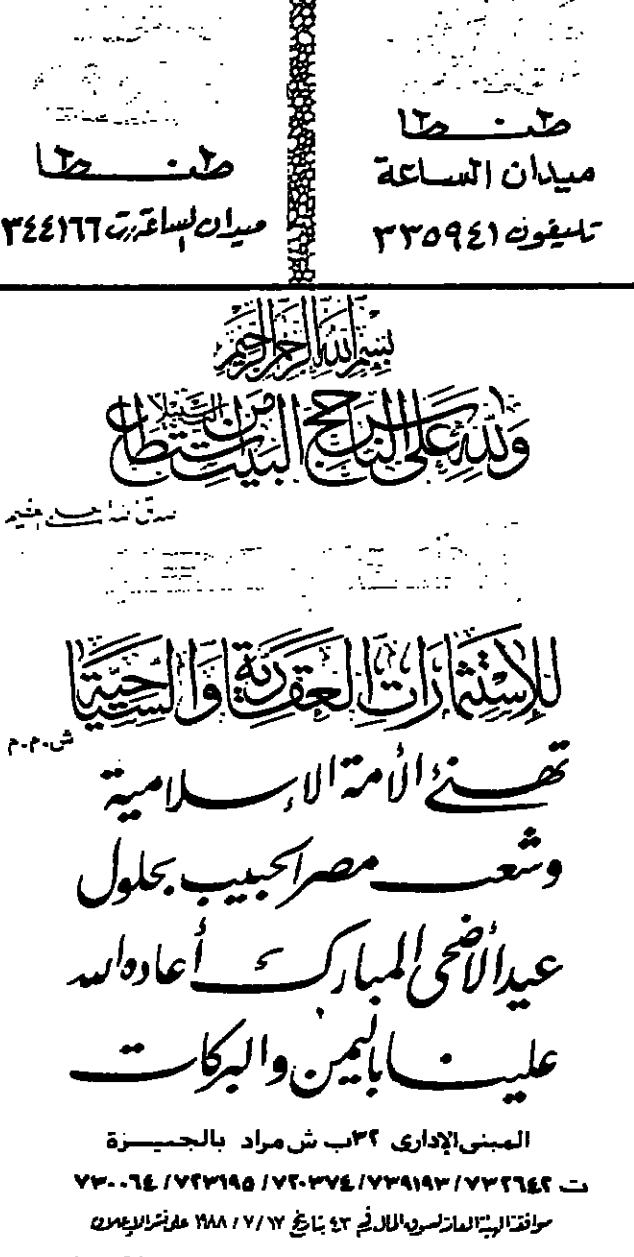 طنطا
ميدان الساعة
تليفون ٣٣٥٩٤١
طنطا
ميدان الساعة ت ٣٤٤١٦٦
بسم الله الرحمن الرحيم
ولله على الناس حج البيت من استطاع إليه سبيلا
صدق الله العظيم
للاستثمارات العقارية والسياحية
ش.م.م
تهنئ الأمة الإسلامية
وشعب مصر الحبيب بحلول
عيد الأضحى المبارك أعاده الله
علينا باليمن والبركات
المبنى الإدارى ٣٢ب ش مراد بالجيزة
ت ٧٣٢٦٤٢ / ٧٣٩١٩٣ / ٧٢٠٣٧٤ / ٧٢٣١٩٥ / ٧٣٠٠٦٤
موافقة الهيئة العامة لسوق المال رقم ٤٣ بتاريخ ١٧ / ٧ / ١٩٨٨ على نشر الإعلان